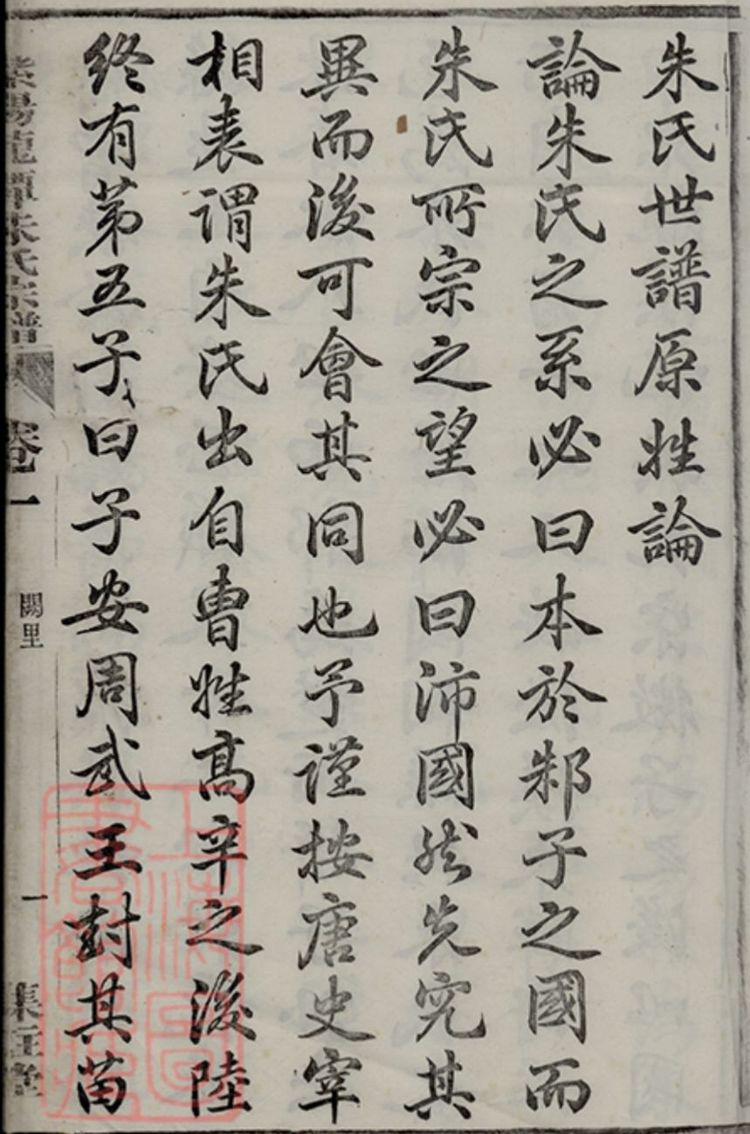 朱氏世譜原姓論
論朱氏之系必曰本於邾子之國而
朱氏所宗之望必曰沛國然先究其
異而後可會其同也予謹按唐史宰
相表謂朱氏出自曹姓高辛之後陸
終有第五子曰子安周武王封其苗
朱氏宗譜
卷一
闕里
一